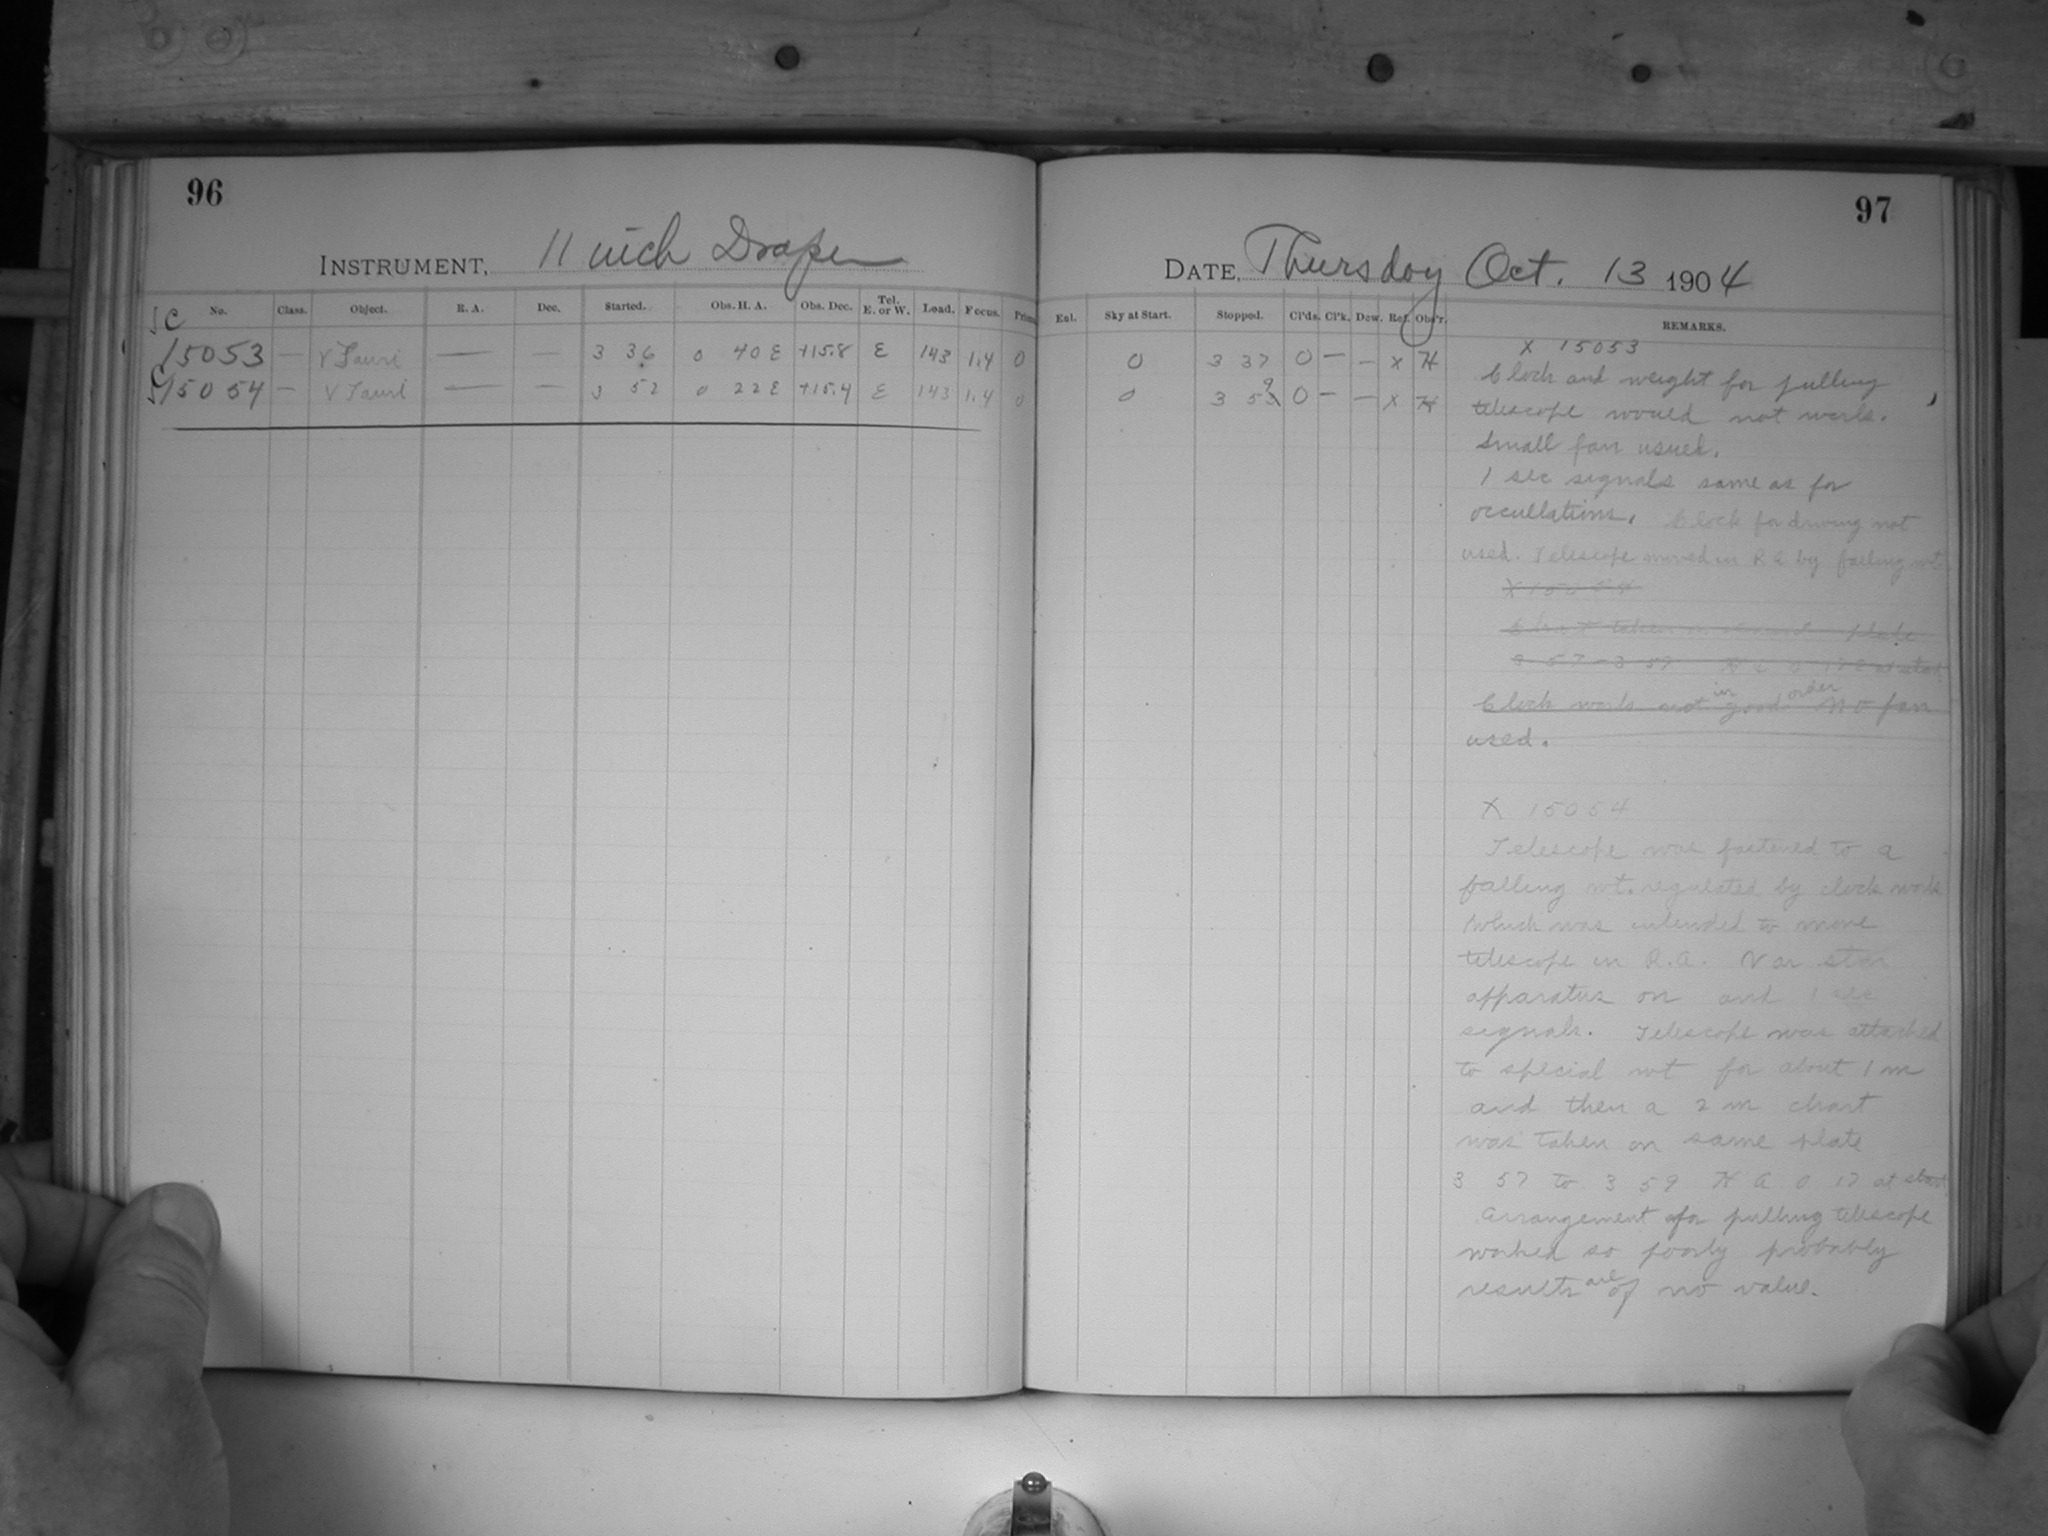 96
INSTRUMENT, 11 inch Draper
No. Class. Object. R. A. Dec. Started. Obs. H. A. Obs. Dec. Tel. E. or W. Load. Focus. Prism
15053 — V Tauri — — 3 36 0 40 E +15.8 E 143 1.4 0
15054 — V Tauri — — 3 52 0 22 E +15.4 E 143 1.4 0
97
DATE, Thursday Oct. 13 1904
Enl. Sky at Start. Stopped. Cl'ds. Cl'k. Dew. Ref. Obs'r. REMARKS.
0 3 37 0 — — x H
0 3 59 0 — — x H
X 15053
Clock and weight for pulling
telescope would not work.
Small fan used.
1 sec signals same as for
occultations. Clock for driving not
used. Telescope moved in R A by falling wt
X 15054
Chart taken on same plate
3 57 - 3 59 H A 0 17 E at start
Clock work not in good order No fan
used.
X 15054
Telescope was fastened to a
falling wt. regulated by clock work
which was intended to move
telescope in R.A. Var star
apparatus on and 1 sec
signals. Telescope was attached
to special wt for about 1 m
and then a 2 m chart
was taken on same plate
3 57 to 3 59 H A 0 17 at start
Arrangement for pulling telescope
worked so poorly probably
results are of no value.